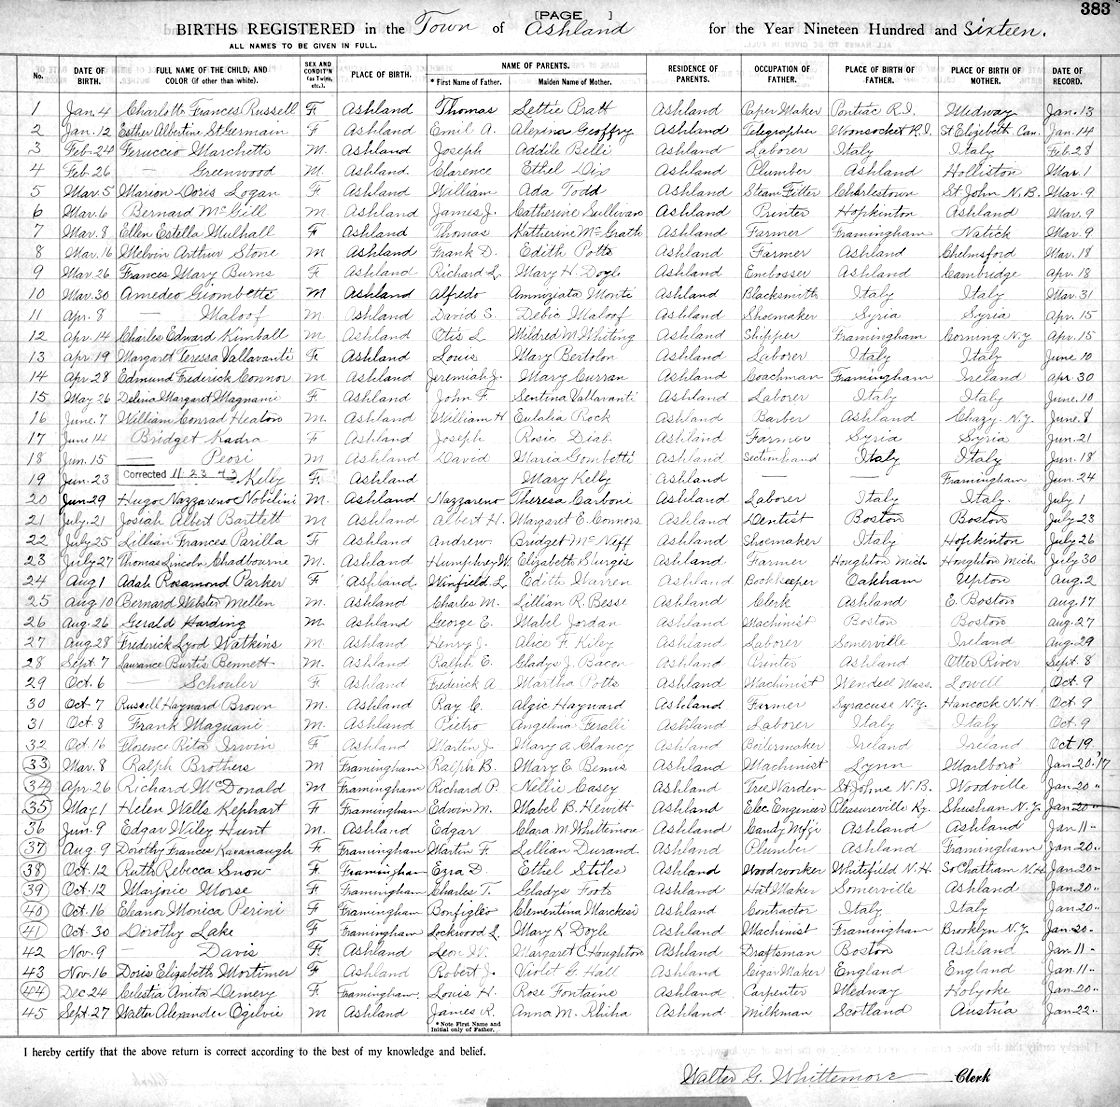 [PAGE ] 383
BIRTHS REGISTERED in the Town of Ashland for the Year Nineteen Hundred and Sixteen.
ALL NAMES TO BE GIVEN IN FULL.
No. DATE OF BIRTH. FULL NAME OF THE CHILD, AND COLOR (if other than white). SEX AND CONDIT'N (as Twins, etc.). PLACE OF BIRTH. NAME OF PARENTS. * First Name of Father. Maiden Name of Mother. RESIDENCE OF PARENTS. OCCUPATION OF FATHER. PLACE OF BIRTH OF FATHER. PLACE OF BIRTH OF MOTHER. DATE OF RECORD.
1 Jan. 4 Charlotte Frances Russell F. Ashland Thomas Lettie Pratt Ashland Paper Maker Pontiac R.I. Medway Jan. 13
2 Jan. 12 Esther Albertina St Germain F Ashland Emil A. Alexina Geoffry Ashland Telegrapher Woonsocket R.I. St Elizabeth Can. Jan. 14
3 Feb. 24 Feruccio Marchette M. Ashland Joseph Addile Belli Ashland Laborer Italy Italy Feb 28
4 Feb. 26 — Greenwood M Ashland. Clarence Ethel Dix Ashland Plumber Ashland Holliston Mar. 1
5 Mar. 5 Marion Doris Logan F Ashland William Ada Todd Ashland Steam Fitter Charlestown St John N.B. Mar. 9
6 Mar. 6 Bernard McGill M Ashland James J. Catherine Sullivan Ashland Printer Hopkinton Ashland Mar. 9
7 Mar. 8 Ellen Estella Mulhall F Ashland Thomas Katherine McGrath Ashland Farmer Framingham Natick Mar. 9
8 Mar. 16 Melvin Arthur Stone M Ashland Frank D. Edith Potts Ashland Farmer Ashland Chelmsford Mar. 18
9 Mar. 26 Frances Mary Burns F Ashland Richard L. Mary H. Doyle Ashland Embosser Ashland Cambridge Apr. 18
10 Mar. 30 Amedeo Giombetti M Ashland Alfredo Annuziata Monti Ashland Blacksmith Italy Italy Mar. 31
11 Apr. 8 — Maloof M. Ashland David S. Debie Maloof Ashland Shoemaker Syria Syria Apr. 15
12 Apr. 14 Charles Edward Kimball M Ashland Otis L Mildred M. Whiting Ashland Shipper Framingham Corning N.Y. Apr. 15
13 Apr 19 Margaret Teressa Vallavanti F Ashland Louis Mary Bertolon Ashland Laborer Italy Italy June 10
14 Apr 28 Edmund Frederick Connor M Ashland Jeremiah J. Mary Curran Ashland Coachman Framingham Ireland Apr 30
15 May 26 Delina Margaret Magnani F Ashland John F. Sentina Vallavanti Ashland Laborer Italy Italy June. 10
16 June. 7 William Conrad Heaton M. Ashland William H Eulalia Rock Ashland Barber Ashland Chazy. N.Y. June. 8
17 June 14 Bridget Kadra F Ashland Joseph Rosie Diab Ashland Farmer Syria Syria Jun. 21
18 Jun. 15 — Peosi M Ashland David Maria Gombetti Ashland Section hand Italy Italy Jun. 18
19 Jun. 23 Corrected 11 23 43 Kelly F. Ashland Mary Kelly Ashland — — Framingham Jun. 24
20 Jun. 29 Hugo Nazzareno Nobilini M. Ashland Nazzareno Theresa Carboni Ashland Laborer Italy Italy July 1
21 July. 21 Josiah Albert Bartlett M Ashland Albert H. Margaret E. Connors Ashland Dentist Boston Boston July 23
22 July 25 Lillian Frances Parilla F Ashland Andrew Bridget McNiff Ashland Shoemaker Italy Hopkinton July 26
23 July 27 Thomas Lincoln Chadbourne M. Ashland Humphrey W. Elizabeth Sturgis Ashland Farmer Houghton Mich Houghton Mich. July 30
24 Aug 1 Adah Rosamond Parker F Ashland. Winfield L. Edith Warren Ashland Bookkeeper Oakham Upton Aug. 2
25 Aug 10 Bernard Webster Mellen M. Ashland Charles M. Lillian R. Besse Ashland Clerk Ashland E. Boston Aug. 17
26 Aug. 26 Gerald Harding M. Ashland George E. Mabel Jordan Ashland Machinist Boston Boston Aug. 27
27 Aug. 28 Frederick Lyod Watkins M Ashland Henry J. Alice F. Kiley Ashland Laborer Somerville Ireland Aug. 29
28 Sept. 7 Laurance Burtis Bennett M. Ashland Ralph E. Gladys J. Bacon Ashland Printer Ashland Otter River Sept. 8
29 Oct. 6 — Schouler F. Ashland Frederick A Martha Potts Ashland Machinist Wendell Mass. Lowell Oct. 9
30 Oct. 7 Russell Hayward Brown M Ashland Ray C. Algie Hayward Ashland Farmer Syracuse N.Y. Hancock N.H. Oct. 9
31 Oct 8 Frank Maguani M Ashland Pietro Angelina Feralli Ashland Laborer Italy Italy Oct. 9
32 Oct. 16 Florence Rita Irwin F Ashland Martin J. Mary A. Clancy Ashland Boilermaker Ireland Ireland Oct 19
33 Mar. 8 Ralph Brothers M Framingham Ralph B. Mary E Bemis Ashland Machinist Lynn Marlboro Jan. 20. '17
34 Apr. 26 Richard McDonald M Framingham Richard P. Nellie Casey Ashland Tree Warden St Johns N.B. Woodville Jan. 20 "
35 May 1 Helen Wells Kephart F Framingham Edwin M. Mabel B. Hewitt Ashland Elec. Engineer Pleasureville Ky. Shushan N.Y. Jan 20 "
36 Jun. 9 Edgar Wiley Hunt M. Ashland Edgar Clara M. Whittemore Ashland Candy Mfgr Ashland Ashland Jan. 11 "
37 Aug. 9 Dorothy Frances Kavanaugh F Framingham Martin F. Lillian Durand Ashland Plumber Ashland Framingham Jan. 20 "
38 Oct. 12 Ruth Rebecca Snow F Framingham Ezra D. Ethel Stiles Ashland Woodworker Whitefield N.H. So Chatham N.H. Jan. 20 "
39 Oct. 12 Marjorie Morse F Framingham Charles T. Gladys Foote Ashland Hat Maker Somerville Ashland Jan. 20 "
40 Oct. 16 Eleanor Monica Perini F Framingham Bonfiglio Clementina Marchesi Ashland Contractor Italy Italy Jan. 20 "
41 Oct. 30 Dorothy Lake F Framingham Lockwood L. Mary K Doyle Ashland Machinist Framingham Brooklyn N.Y. Jan. 20 "
42 Nov. 9 — Davis F. Ashland Leon W. Margaret C. Houghton Ashland Draftsman Boston Ashland Jan. 11 "
43 Nov. 16 Doris Elizabeth Mortimer F Ashland Robert J. Violet G. Hall Ashland Cigar Maker England England Jan. 11 "
44 Dec 24 Celestia Anita Demery F. Framingham. Louis H. Rose Fontaine Ashland Carpenter Medway Holyoke Jan. 20 "
45 Sept. 27 Walter Alexander Ogilvie M Ashland James R. Anna M. Ashland Milkman Scotland Austria Jan. 22 "
* Note First Name and Initial only of Father.
I hereby certify that the above return is correct according to the best of my knowledge and belief.
Walter G. Whittemore Clerk